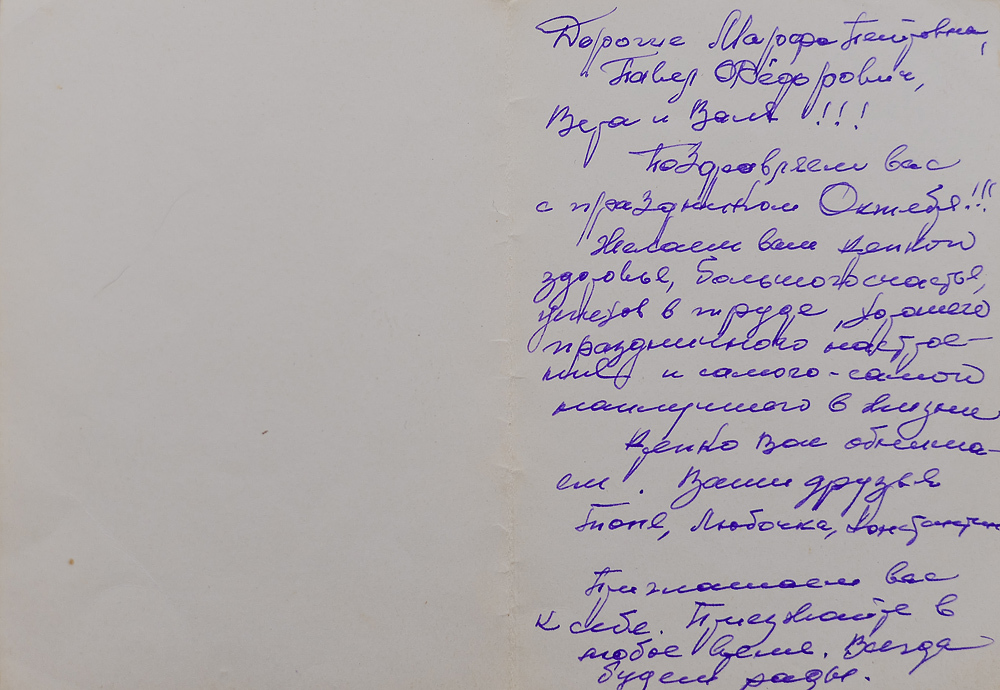 Дорогие Марфа Петровна,
Павел Фёдорович,
Вера и Валя !!!
Поздравляем вас
с праздником Октября!!!
Желаем вам крепкого
здоровья, большого счастья,
успехов в труде, хорошего
праздничного настрое-
ния и самого-самого
наилучшего в жизни
Крепко Вас обнима-
ем. Ваши друзья
Тоня, Любочка, Константин
Приглашаем вас
к себе. Приезжайте в
любое время. Всегда
будем рады.